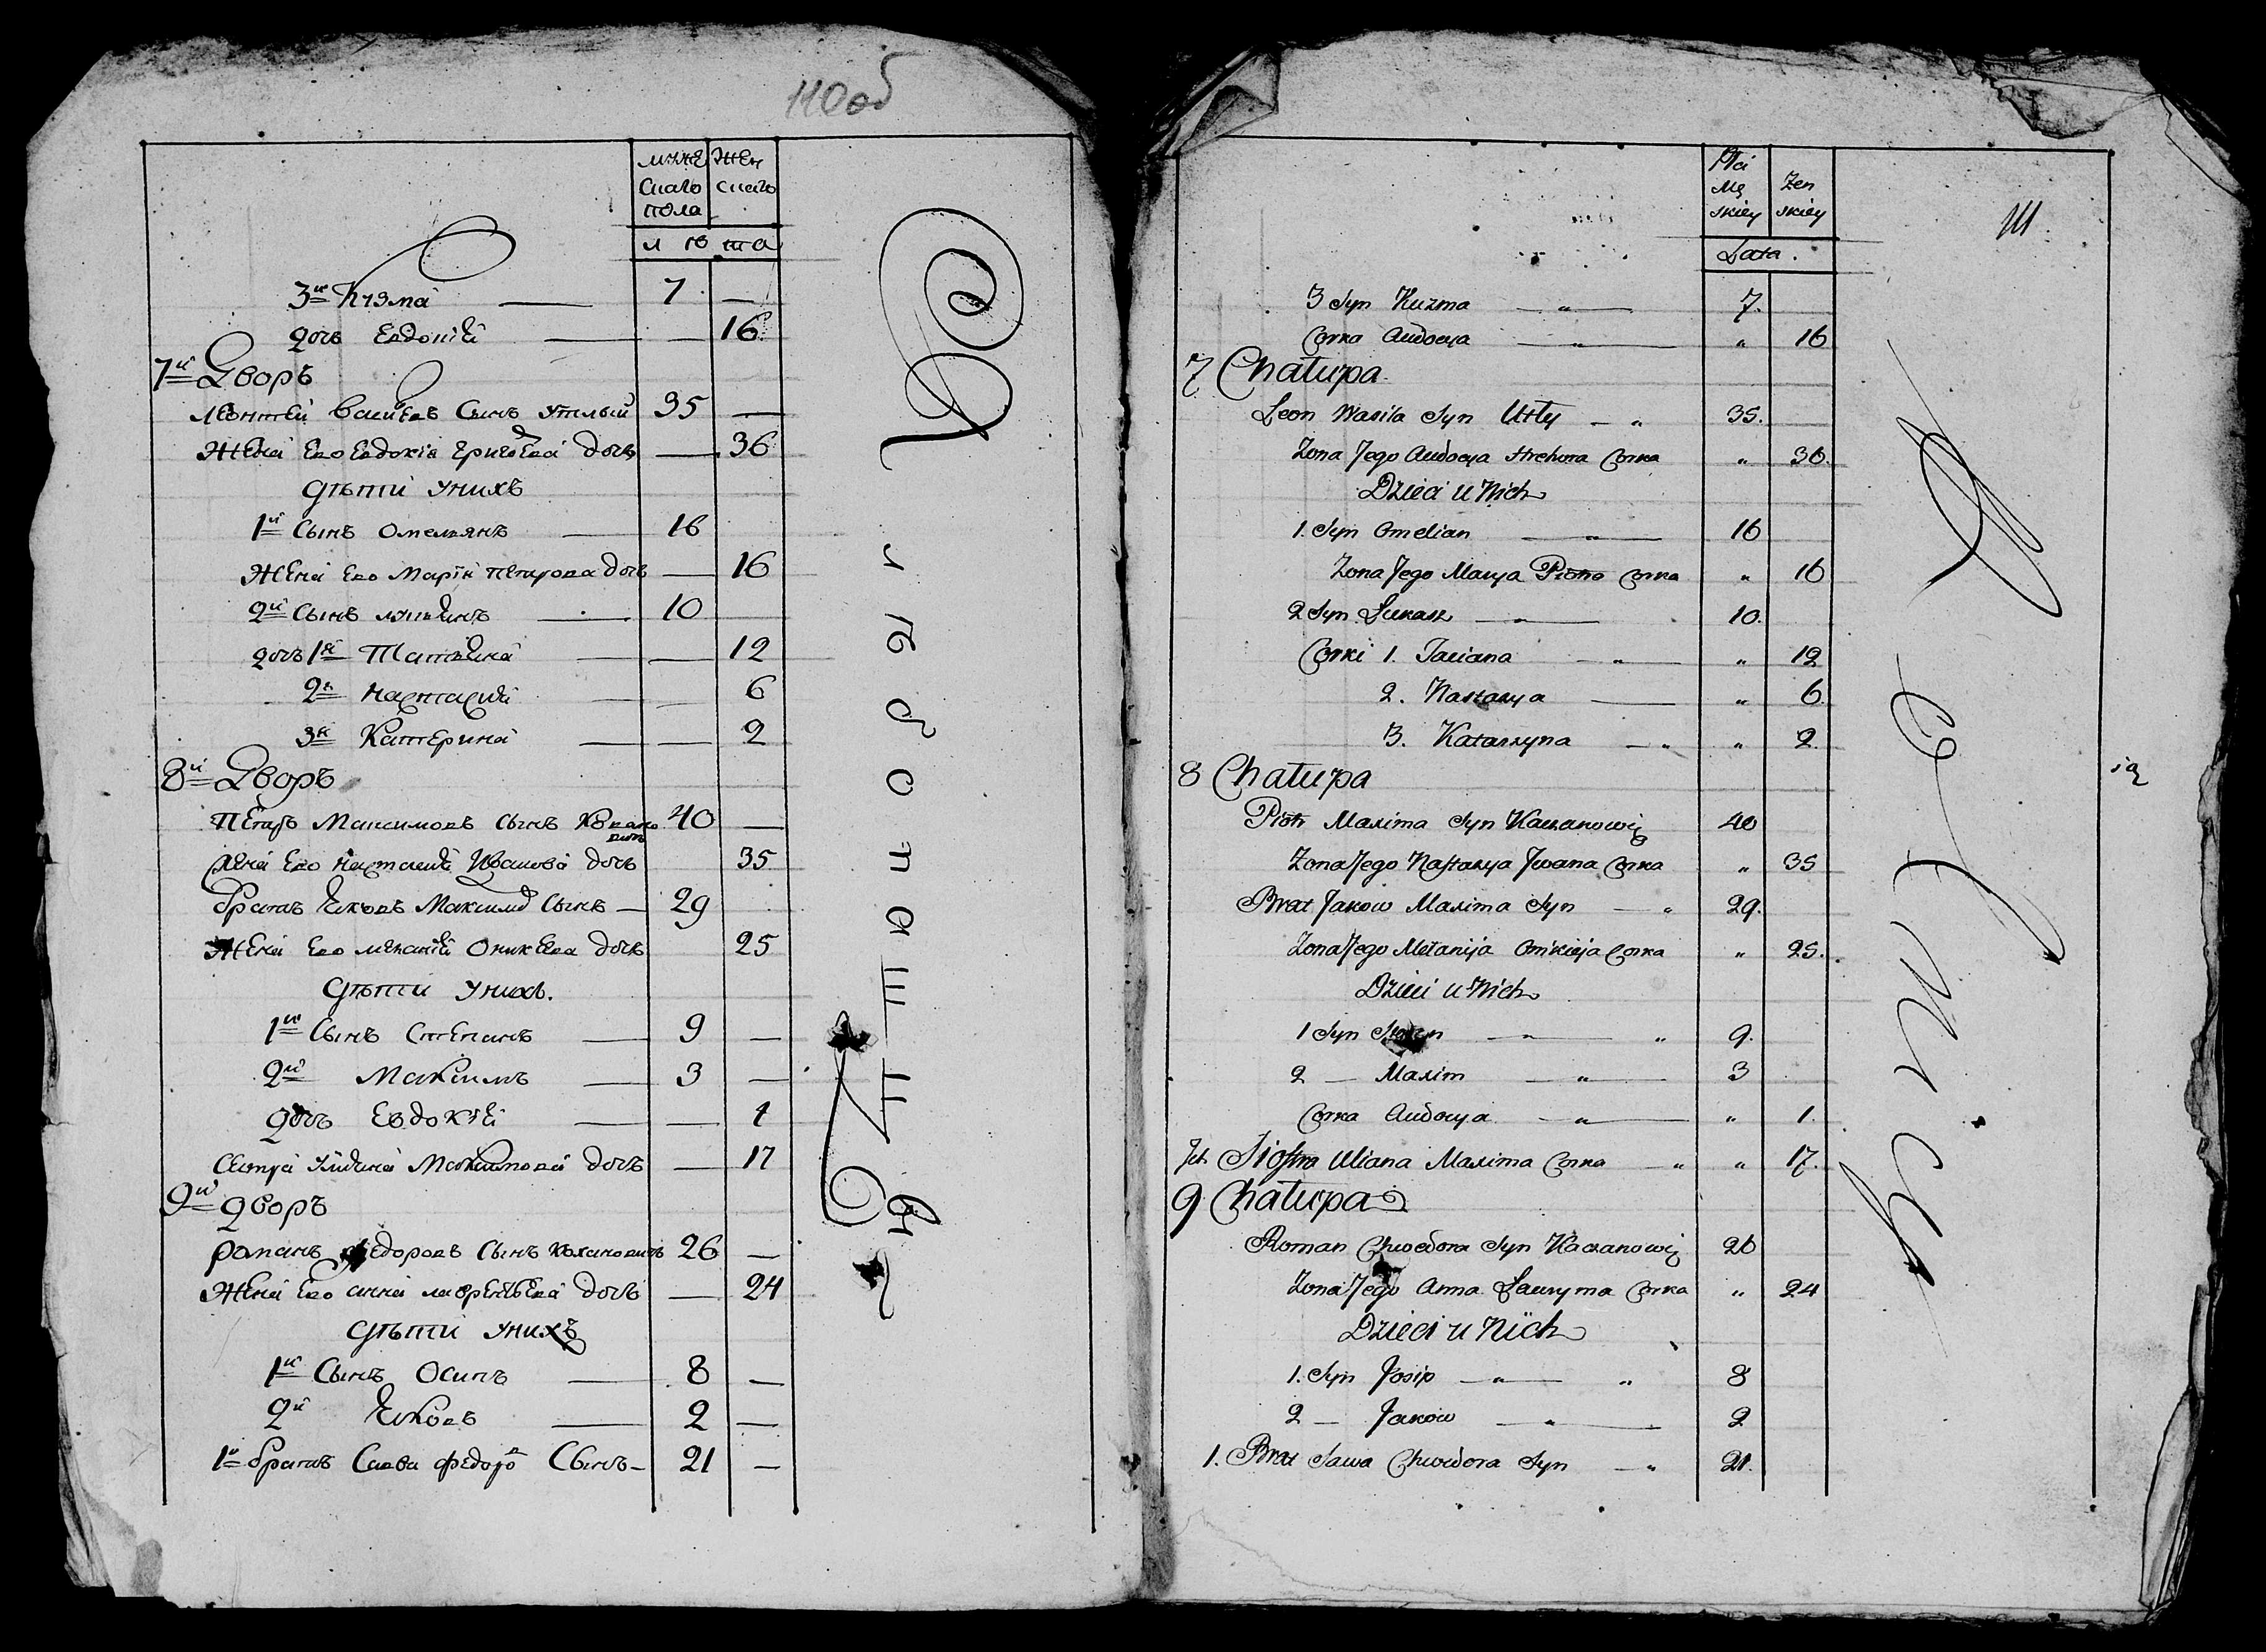 110об
муже
скаго
пола
жен
скаго
лѣта
3й Кузма — 7 —
дочь Евдокія — — 16
7й Дворъ
Леонтей Васильевъ Сынъ Утлый 35 —
Жена Ево Евдокія Григорьева дочь — 36
Дѣти Унихъ
1й Сынъ Омельянъ — 16
Жена Ево Марія Петрова дочь — 16
2й Сынъ — 10
дочь 1я Татьяна — — 12
2я Настасія — — 6
3я Катерина — — 2
8й Дворъ
Петръ Максимовъ Сынъ 40 —
Жена Ево Настасія Иванова дочь 35
братъ Яковъ Максимов Сынъ — 29
Жена Ево Меланія Оникеева дочь 25
Дѣти Унихъ.
1й Сынъ Степанъ — 9 —
2й Максимъ — 3 —
дочь Евдокія — — 1
Сестра Ульяна Максимова дочь — 17
9й дворъ
Романъ Федоровъ Сынъ Кохановичъ 26 —
Жена Ево анна лаврентьева дочь — 24
Дѣти Унихъ
1й Сынъ Осипъ — 8 —
2й Яковъ — 2 —
1й братъ Сава Федоров Сынъ — 21 —
111
Płci
Mę
skiey
Zen
skiey
Lata.
3 Syn Kuzma — „ — 7.
Corka Audocya — „ — „ 16
7 Chałupa
Leon Wasila Syn Utły — „ 35.
Zona Jego Audocya Hrehora Corka „ 36.
Dzieci u Nich
1. Syn Omelian — „ — 16
Zona Jego Marya Piotra Corka „ 16
2 Syn Łukasz — „ — 10.
Corki 1. Taciana — „ — „ 12
2. Nastazya — „ 6.
3. Katarzyna — „ „ 2
8 Chałupa
Piotr Maxima Syn Kachanowicz 40
Zona Jego Nastazya Jwana Corka „ 35
Brat Jakow Maxima Syn — „ 29.
Zona Jego Mełanija Onikieja Corka „ 25.
Dzieci u Nich
1 Syn — „ — „ 9.
2 — Maxim — „ — 3
Corka Audocya — „ — „ 1.
Jch Siostra Uliana Maxima Corka — „ „ 17.
9 Chałupa
Roman Chwedora Syn Kachanowicz 26
Zona Jego Anna Ławryna Corka „ 24
Dzieci u Nich
1. Syn Josip — „ — „ 8
2 — Jakow — „ — 2
1. Brat Sawa Chwedora Syn — „ 21.